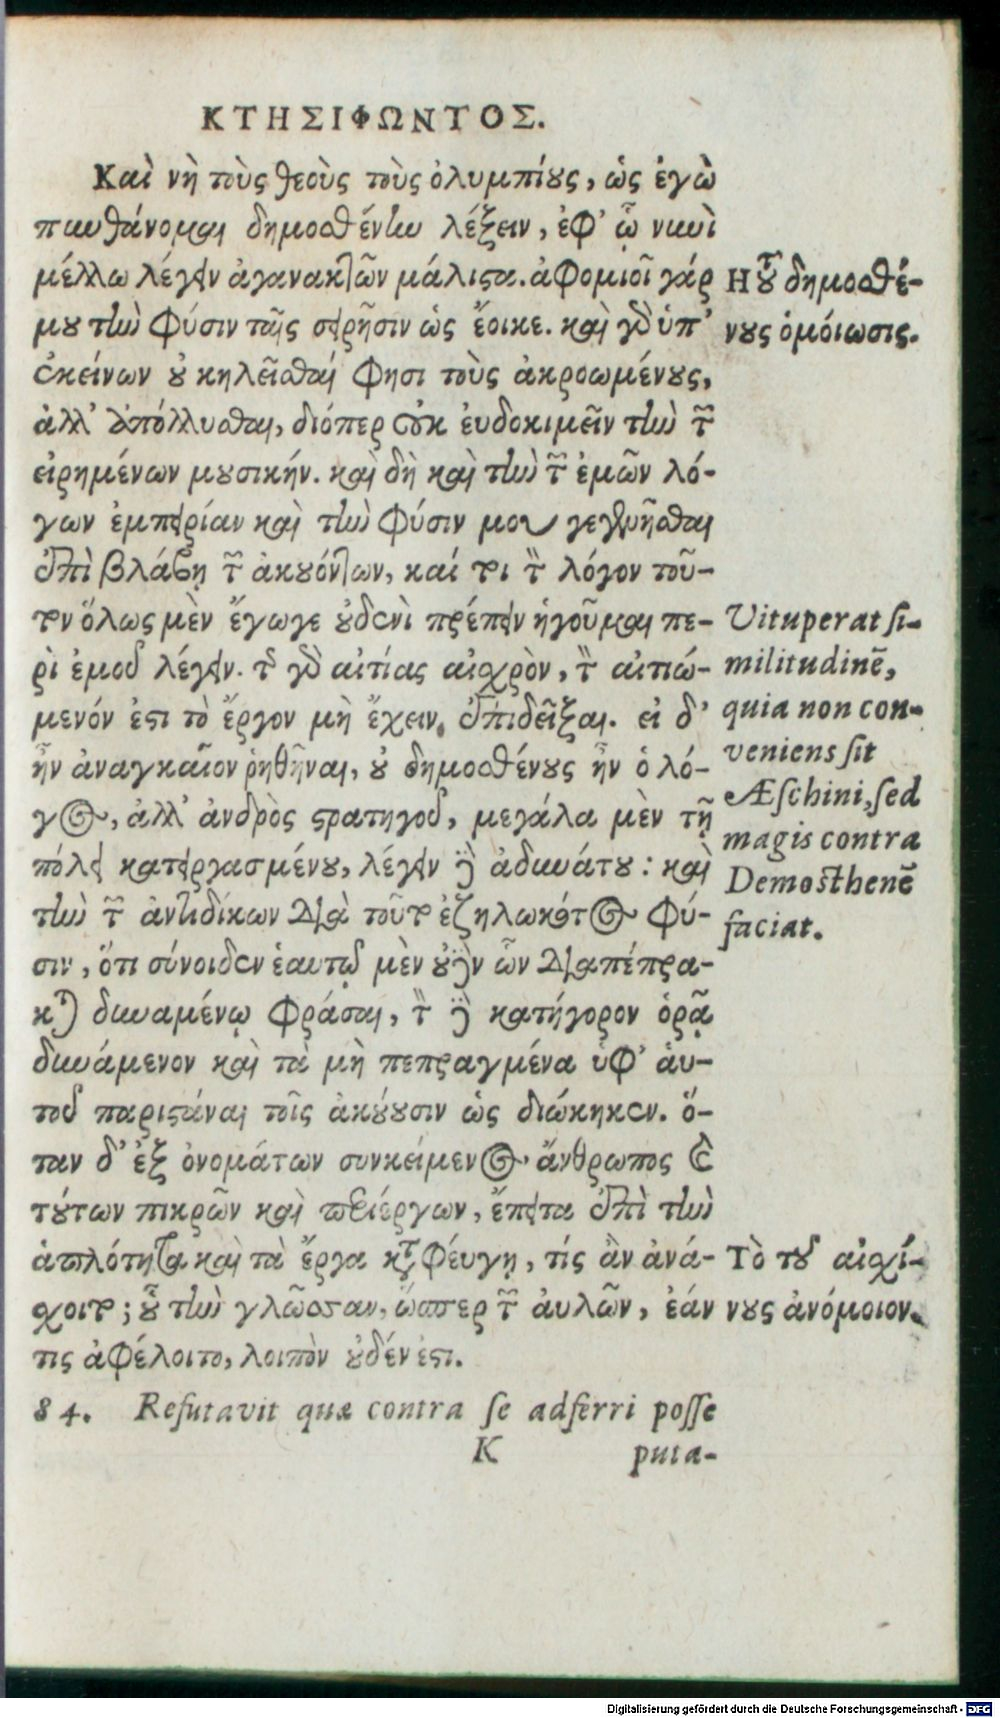 ΚΤΗΣΙΦΩΝΤΟΣ.
Καὶ νὴ τοὺς θεοὺς τοὺς ὀλυμπίους, ὡς ἐγὼ
πυνθάνομαι δημοσθένην λέξειν, ἐφ' ᾧ νυνὶ
μέλλω λέγειν ἀγανακτῶν μάλιστα. ἀφομιοῖ γάρ
μου τὴν φύσιν ταῖς σειρῆσιν ὡς ἔοικε. καὶ γὸ ὑπ'
ἐκείνων οὐ κηλεῖσθαί φησι τοὺς ἀκροωμένους,
ἀλλ' ἀπόλλυσθαι, διόπερ οὐκ εὐδοκιμεῖν τὴν τῶν
εἰρημένων μουσικήν. καὶ δὴ καὶ τὴν τῶν ἐμῶν λό-
γων ἐμπειρίαν καὶ τὴν φύσιν μου γεγενῆσθαι
ἐπὶ βλάβῃ τῶν ἀκουόντων, καί τοι τὸν λόγον τοῦ-
τον ὅλως μὲν ἔγωγε οὐδενὶ πρέπειν ἡγοῦμαι πε-
ρὶ ἐμοῦ λέγειν. τῆς γὸ αἰτίας αἰσχρὸν, τὸν αἰτιώ-
μενόν ἐστι τὸ ἔργον μὴ ἔχειν ἐπιδεῖξαι. εἰ δ'
ἦν ἀναγκαῖον ῥηθῆναι, οὐ δημοσθένους ἦν ὁ λό-
γος, ἀλλ' ἀνδρὸς στρατηγοῦ, μεγάλα μὲν τῇ
πόλει κατειργασμένου, λέγειν δὲ ἀδυνάτου: καὶ
τὴν τῶν ἀντιδίκων διὰ τοῦτο ἐζηλωκότος φύ-
σιν, ὅτι σύνοιδεν ἑαυτῷ μὲν οὐδὲν ὧν διαπέπρα-
κται δυναμένῳ φράσαι, τὸν δὲ κατήγορον ὁρᾷ
δυνάμενον καὶ τὰ μὴ πεπραγμένα ὑφ' αὑ-
τοῦ παριστάναι τοῖς ἀκούουσιν ὡς διώκηκεν. ὅ-
ταν δ' ἐξ ὀνομάτων συνκείμενος ἄνθρωπος καὶ
τούτων πικρῶν καὶ περιέργων, ἔπειτα ἐπὶ τὴν
ἁπλότητα καὶ τὰ ἔργα καταφεύγῃ, τίς ἂν ἀνά-
σχοιτο; οὗ τὴν γλῶσσαν, ὥσπερ τῶν αὐλῶν, ἐάν
τις ἀφέλοιτο, λοιπὸν οὐδέν ἐστι.
84. Refutavit quæ contra se adferri posse
K puta-
Η τοῦ δημοσθέ-
νους ὁμόιωσις.
Vituperat si-
militudinē,
quia non con-
veniens sit
Æschini, sed
magis contra
Demosthenē
faciat.
Τὸ τοῦ αἰσχί-
νους ἀνόμοιον.
Digitalisierung gefördert durch die Deutsche Forschungsgemeinschaft - DFG